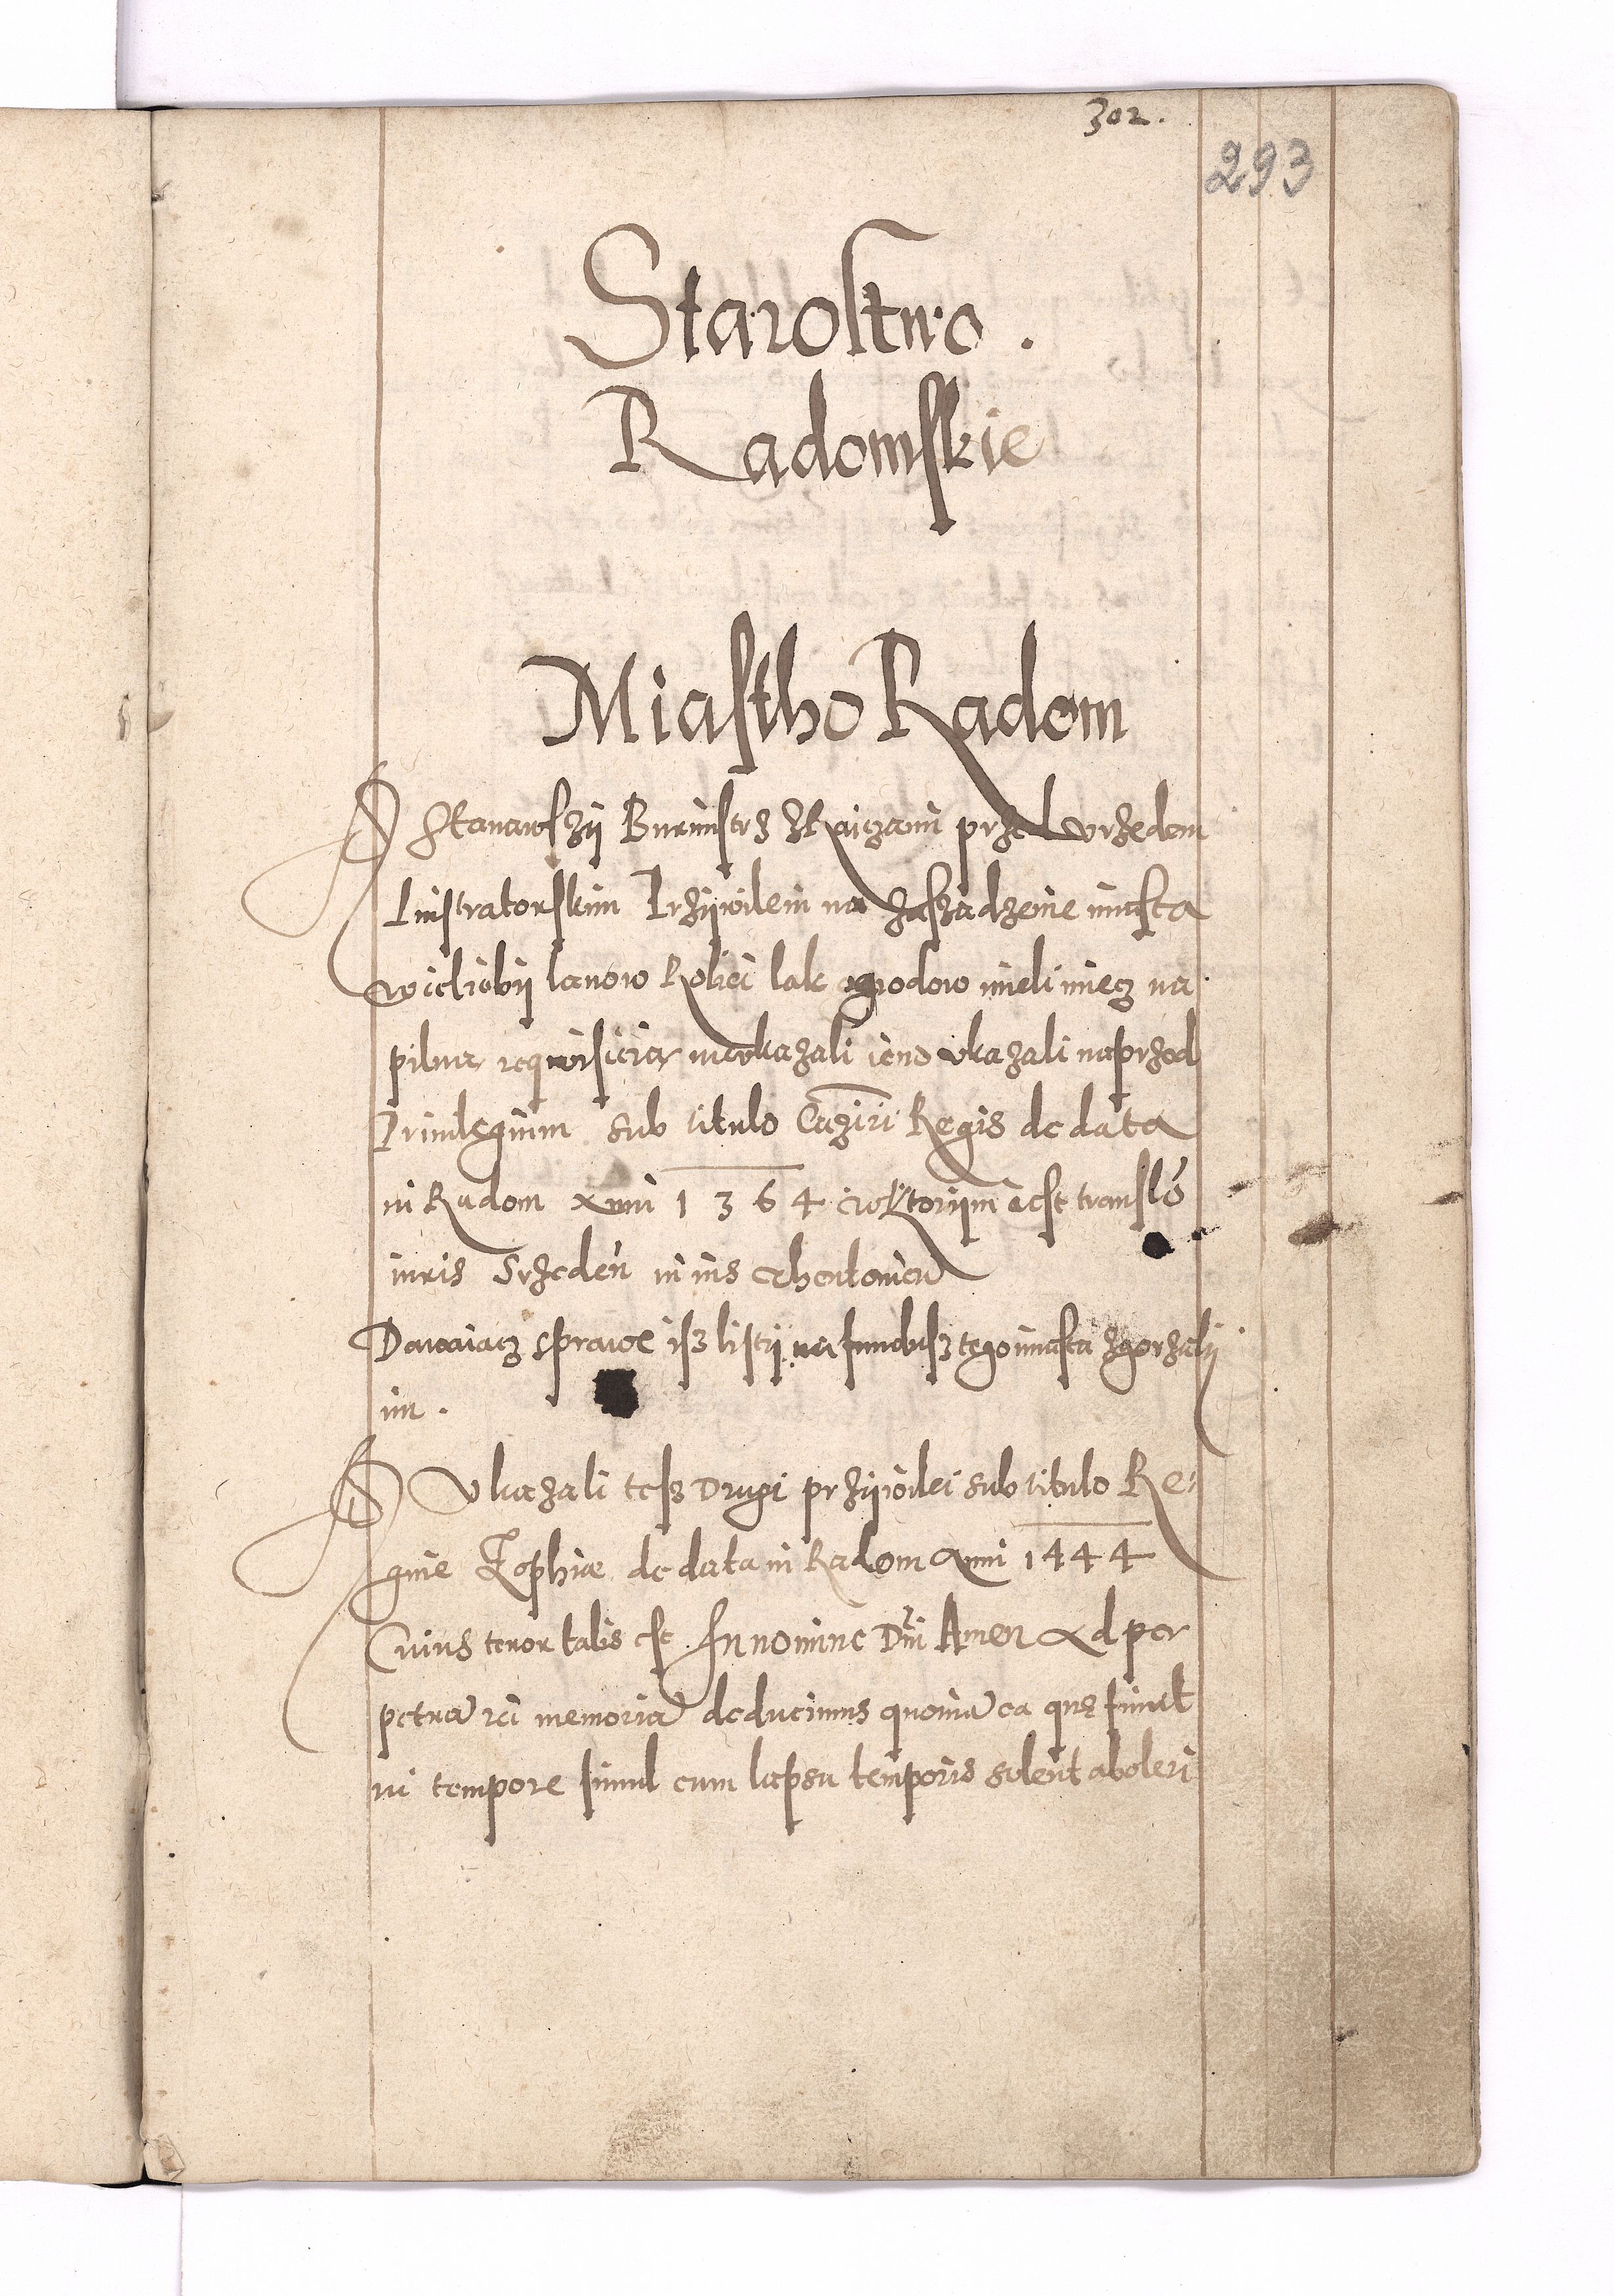 302.
293
Starostwo.
Radomskie
Miastho Radom
Stanawszÿ Burmistrz zRaiczami przed vrzedem
Lustratorskim Przÿwilein na zaszadzeine miasta
wieliobÿ lanow Rolieÿ lak ogrodow mieli miecz na
pilna requisicia nieukazali ieno vkazali naprzod
Priuilegium sub titulo Cazim̄ Regis de data
in Radom Anni 1364 wktorÿm iest translō
iuris Srzeden in ius thentonicu
Dawaiacz sprawe isz listÿ na fundusz tego miasta zgorzalÿ
im.
Vkazali tesz Drugi przÿwilei sub titulo Re:
gine Zophiæ de data in Radom Anni 1444
Cuius tenor talis est. In nomine Dn̄i Amen Ad per
petua rei memoria deducimus quonia ea que fiunt
in tempore simul cum lapsu temporis solent aboleri